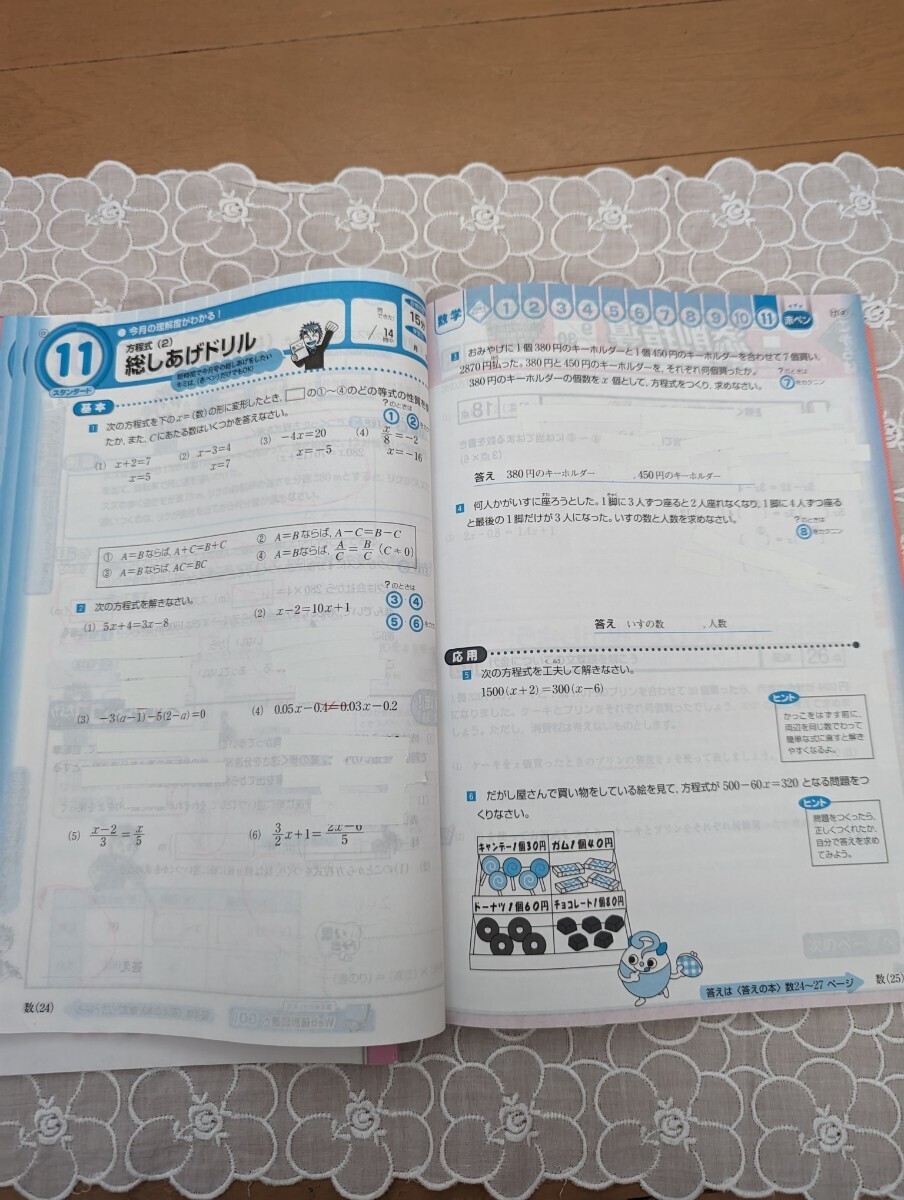 今月の理解度がわかる!
11
スタンダード
方程式(2)
総しあげドリル
短時間で今月号の総しあげをしたい
キミは、〈赤ペン〉だけでもOK!
/14
15分
基本
1 次の方程式を下のx=(数)の形に変形したとき、□の①〜④のどの等式の性質を
たか、また、Cにあたる数はいくつかを答えなさい。
?のときは
① ②
(1) x+2=7
x=5
(2) x-3=4
x=7
(3) -4x=20
x=-5
(4) x/8=-2
x=-16
① A=Bならば、A+C=B+C
② A=Bならば、A-C=B-C
③ A=Bならば、AC=BC
④ A=Bならば、A/C=B/C (C≠0)
2 次の方程式を解きなさい。
?のときは
③ ④
⑤ ⑥
(1) 5x+4=3x-8
(2) x-2=10x+1
(3) -3(a-1)-5(2-a)=0
(4) 0.05x-0.4=0.03x-0.2
(5) (x-2)/3=x/5
(6) 3/2x+1=
5
数(24)
数学
① ② ③ ④ ⑤ ⑥ ⑦ ⑧ ⑨ ⑩ 11 赤ペン
3 おみやげに1個380円のキーホルダーと1個450円のキーホルダーを合わせて7個買い、
2870円払った。380円と450円のキーホルダーを、それぞれ何個買ったか。
380円のキーホルダーの個数をx個として、方程式をつくり、求めなさい。
?のときは
⑦をカクニン
答え 380円のキーホルダー ,450円のキーホルダー
4 何人かがいすに座ろうとした。1脚に3人ずつ座ると2人座れなくなり、1脚に4人ずつ座る
と最後の1脚だけが3人になった。いすの数と人数を求めなさい。
?のときは
⑧をカクニン
答え いすの数 ,人数
応用
5 次の方程式を工夫して解きなさい。
1500(x+2)=300(x-6)
ヒント
かっこをはずす前に、
両辺を同じ数でわって
簡単な式に直すと解き
やすくなるよ。
6 だがし屋さんで買い物をしている絵を見て、方程式が500-60x=320となる問題をつ
くりなさい。
ヒント
問題をつくったら、
正しくつくれたか、
自分で答えを求め
てみよう。
キャンデー1個30円 ガム1個40円
ドーナツ1個60円 チョコレート1個80円
答えは〈答えの本〉数24〜27ページ
数(25)